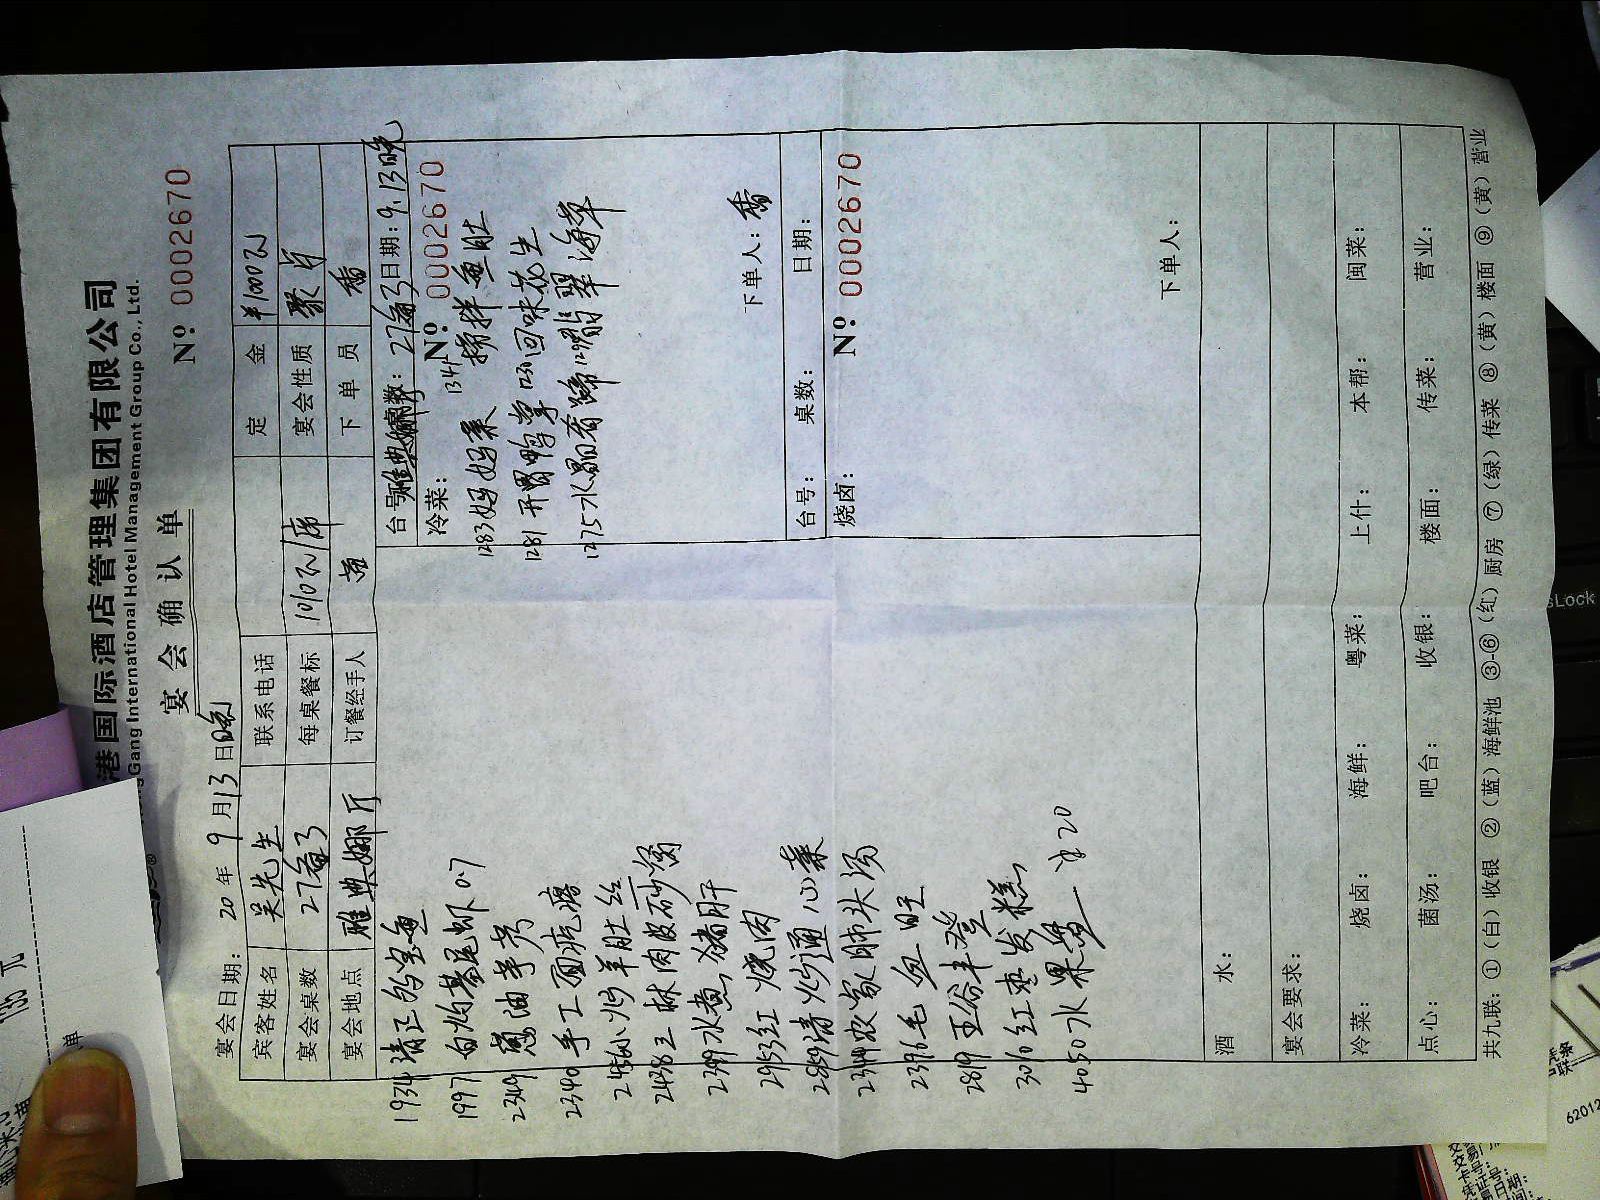 港国际酒店管理集团有限公司
Gang International Hotel Management Group Co., Ltd.
宴会确认单
№ 0002670
宴会日期: 20 年 9 月 13 日晚
宾客姓名 吴先生 联系电话 定金 ¥1000元
宴会桌数 27备3 每桌餐标 1010元/席 宴会性质 聚会
宴会地点 雅典娜厅 订餐经手人 下单员 香
台号: 雅典娜 桌数: 27备3 日期: 9.13晚
冷菜: № 0002670
1283 妈妈菜 1341 捞拌鱼肚
1281 开胃鸭掌 回味花生
1275 水晶肴蹄 翡翠海草
下单人: 香
台号: 桌数: 日期:
烧卤: № 0002670
下单人:
1934 清正鸦宝鱼
1997 白灼基尾虾 0.7
2349 葱油芋艿
2340 手工面疙瘩
小炒羊肚丝
2438 三林肉皮砂锅
2397 水煮猪肝
2953 红烧肉
2889 清炒通心菜
2344 农家肺头汤
2396 毛血旺
2819 五谷丰登
3010 红枣发糕
4050 水果盘一 20
酒水:
宴会要求:
冷菜: 烧卤: 海鲜: 粤菜: 上什: 本帮: 闽菜:
点心: 菌汤: 吧台: 收银: 楼面: 传菜: 营业:
共九联: ①(白)收银 ②(蓝)海鲜池 ③-⑥(红)厨房 ⑦(绿)传菜 ⑧(黄)楼面 ⑨(黄)营业
sLock
62012